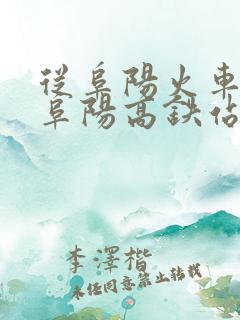 從阜陽火車
阜陽高鉄佔
李澤楷
未经同意禁止转载